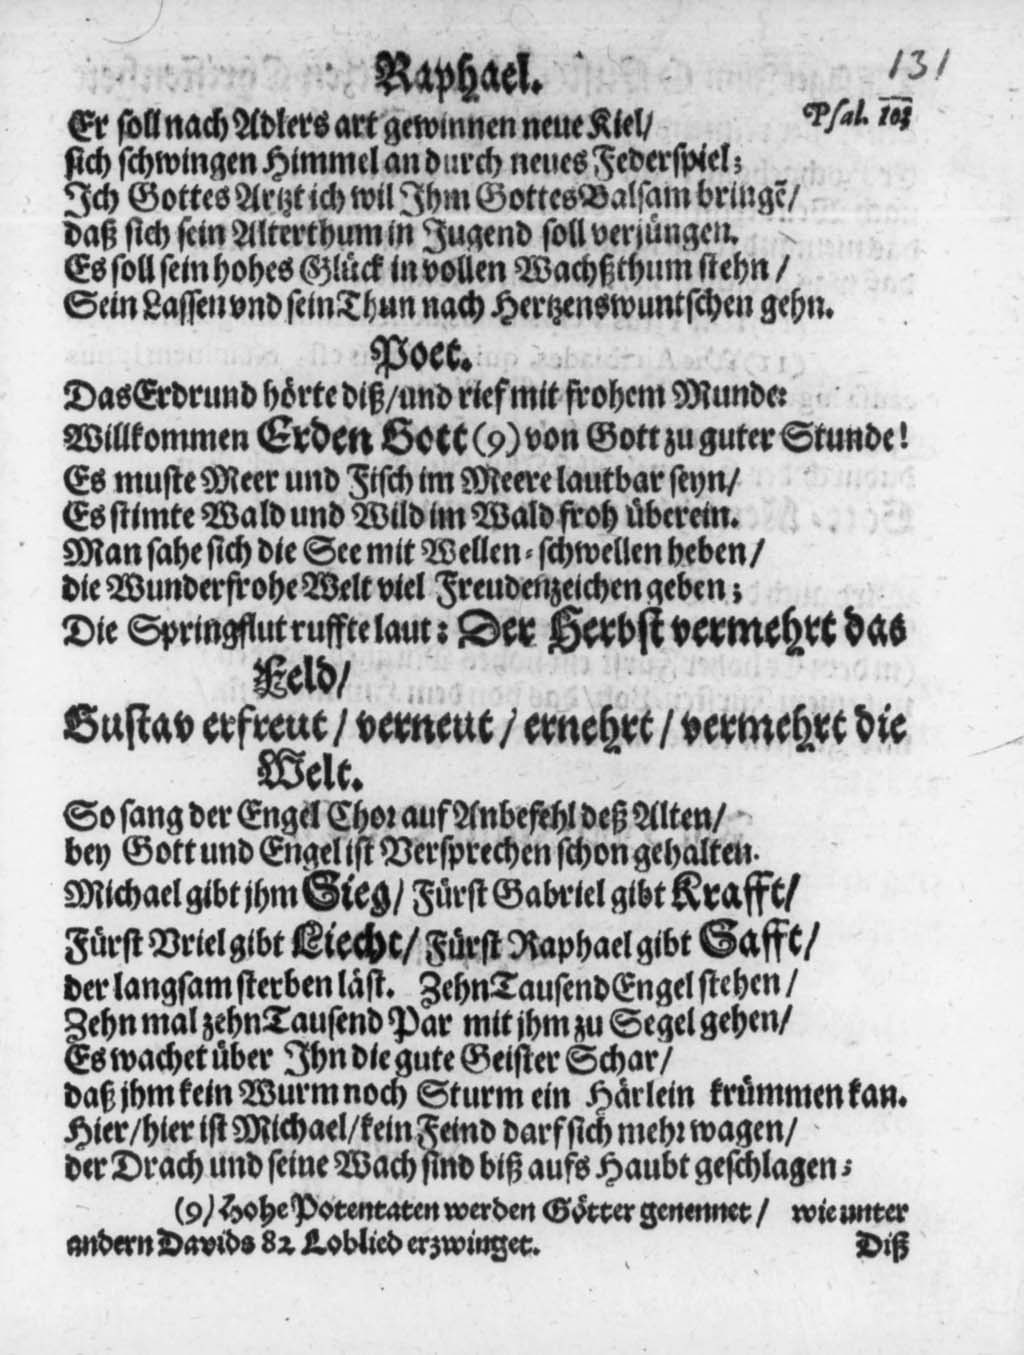 131
Raphael.
Psal. 103
Er soll nach Adlers art gewinnen neue Kiel/
sich schwingen Himmel an durch neues Federspiel;
Ich Gottes Artzt ich wil Ihm Gottes Balsam bringē/
daß sich sein Alterthum in Jugend soll verjüngen.
Es soll sein hohes Glück in vollen Wachßthum stehn /
Sein Lassen vnd sein Thun nach Hertzenswuntschen gehn.
Poet.
Das Erdrund hörte diß/und rief mit frohem Munde:
Willkommen Erden Gott (9) von Gott zu guter Stunde!
Es muste Meer und Fisch im Meere lautbar seyn/
Es stimte Wald und Wild im Wald froh überein.
Man sahe sich die See mit Wellen-schwellen heben/
die Wunderfrohe Welt viel Freudenzeichen geben;
Die Springflut ruffte laut: Der Herbst vermehrt das
Feld/
Gustav erfreut / verneut / ernehrt / vermehrt die
Welt.
So sang der Engel Chor auf Anbefehl deß Alten/
bey Gott und Engel ist Versprechen schon gehalten.
Michael gibt jhm Sieg/ Fürst Gabriel gibt Krafft/
Fürst Vriel gibt Liecht/ Fürst Raphael gibt Safft/
der langsam sterben läst. Zehn Tausend Engel stehen /
Zehn mal zehn Tausend Par mit jhm zu Segel gehen/
Es wachet über Ihn die gute Geister Schar/
daß jhm kein Wurm noch Sturm ein Härlein krümmen kan.
Hier/hier ist Michael/kein Feind darf sich mehr wagen/
der Drach und seine Wach sind biß aufs Haubt geschlagen;
(9) Hohe Potentaten werden Götter genennet / wie unter
andern Davids 82 Loblied erzwinget.
Diß